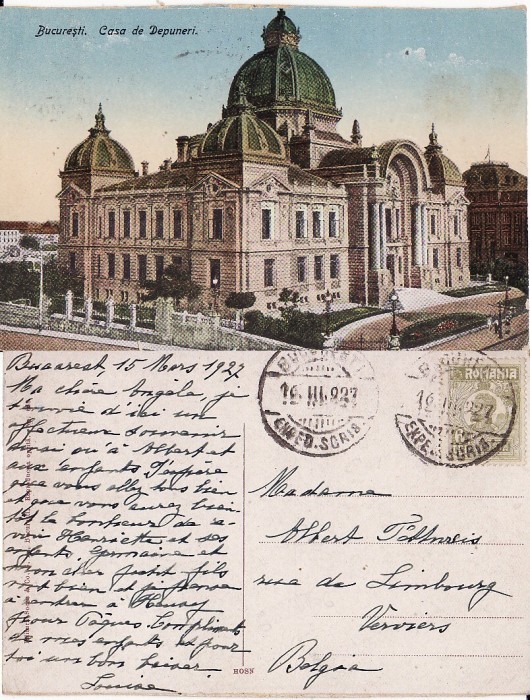 Bucureşti. Casa de Depuneri.
Bucarest, 15 Mars 1927
Ma chère Angèle, je
t'envoie d'ici un
affectueux souvenir
ainsi qu'à Albert et
aux enfants. J'espère
que vous allez tous bien
et que vous aurez bien
tôt le bonheur de re-
voir Henriette et ses
enfants. Germaine et
mon cher petit fils
vont bien et je pense
à rentrer à
pour Pâques. Compliments
de mes enfants et pour
toi un bon baiser
Louise
BUCUREŞTI
16.III.927
EXPED. SCRIS.
BUCUREŞTI
16.III.927
EXPED. SCRIS.
ROMANIA
Madame
Albert
rue de Limbourg
Verviers
Belgia
HOSN